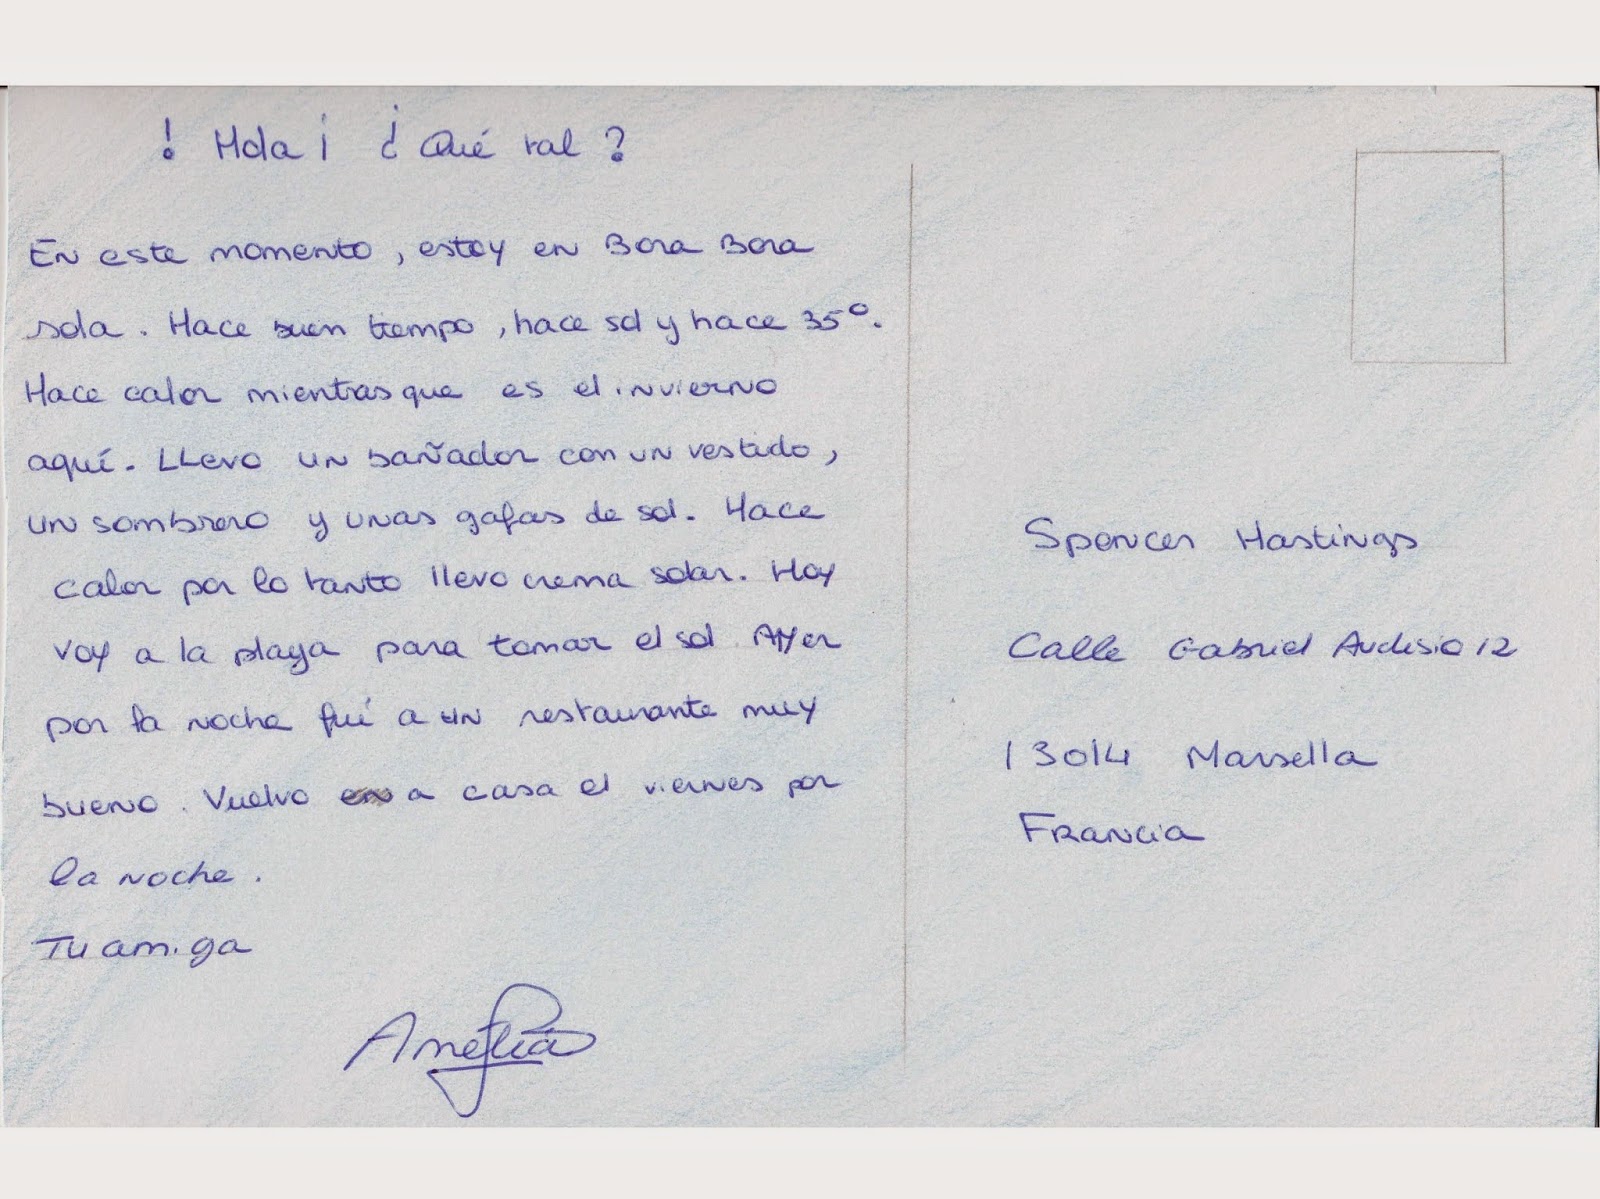 ! Hola ¡ ¿ Qué tal ?
En este momento, estoy en Bora Bora
sola. Hace buen tiempo, hace sol y hace 35°.
Hace calor mientras que es el invierno
aquí. Llevo un bañador con un vestido,
un sombrero y unas gafas de sol. Hace
calor por lo tanto llevo crema solar. Hoy
voy a la playa para tomar el sol. Ayer
por la noche fuí a un restaurante muy
bueno. Vuelvo a casa el viernes por
la noche.
Tu amiga
Amélia
Spencer Hastings
Calle Gabriel Audisio 12
13014 Marsella
Francia